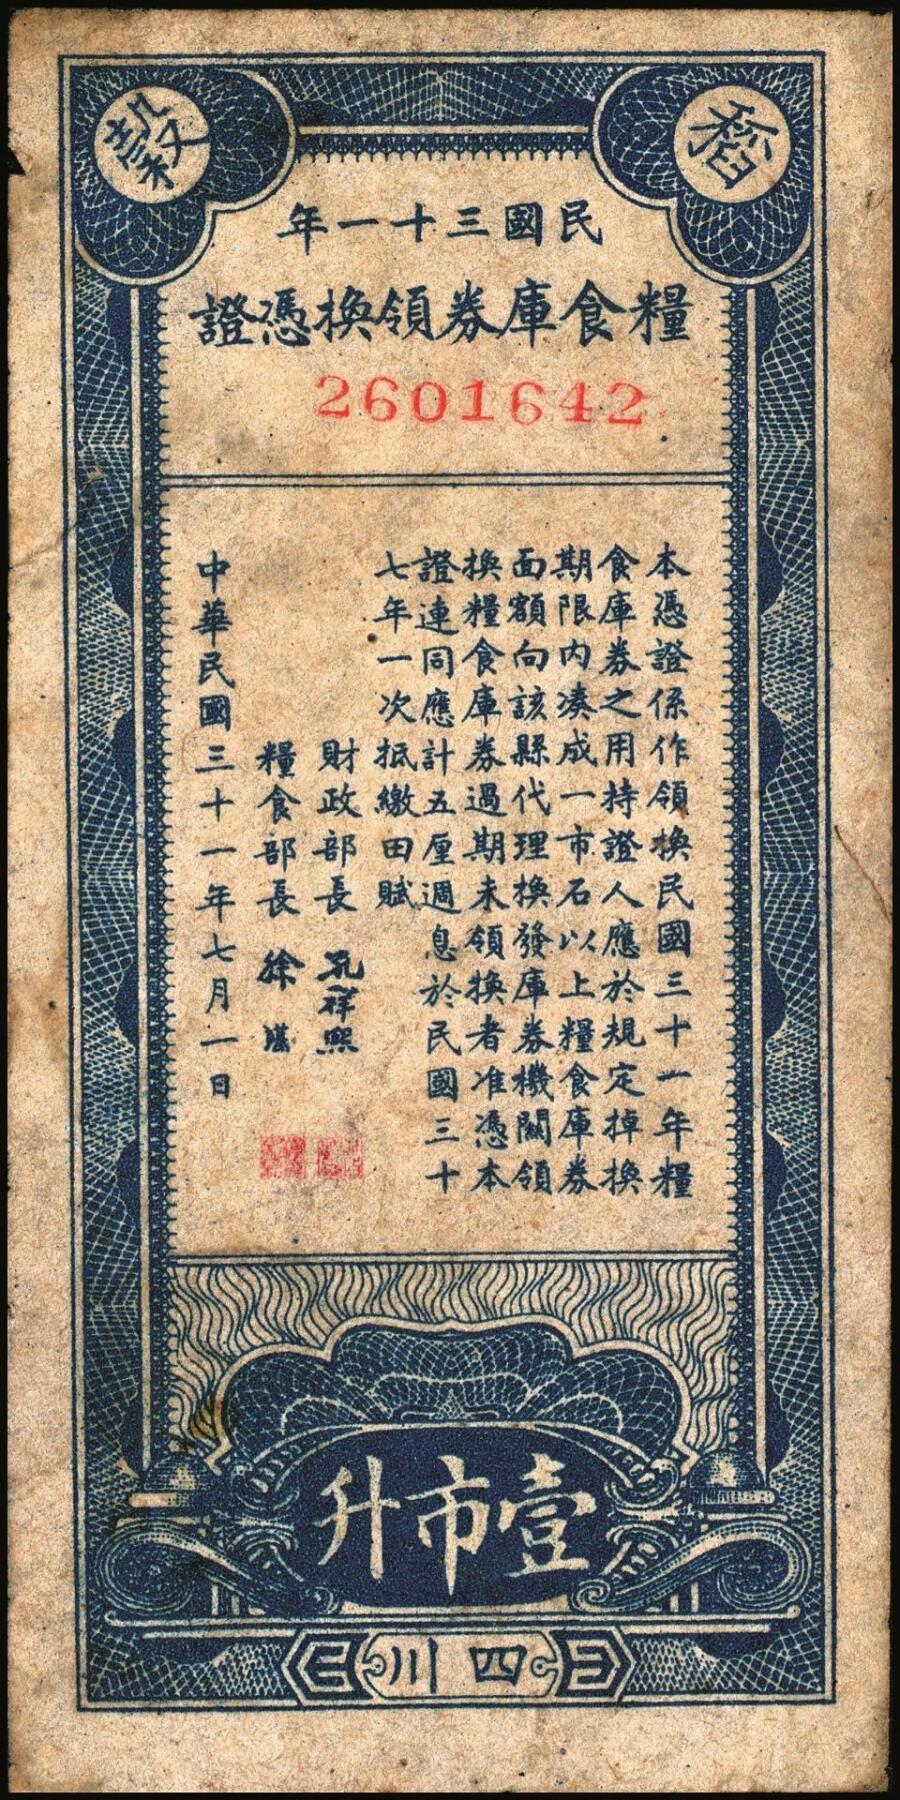 稻穀
民國三十一年
糧食庫券領換憑證
2601642
本憑證係作領換民國三十一年糧
食庫券之用持證人應於規定掉換
期限內湊成一市石以上糧食庫券
面額向該縣代理換發庫券機關領
換糧食庫券過期未領換者准憑本
證連同應計五厘週息於民國三十
七年一次抵繳田賦
財政部長 孔祥熙
糧食部長 徐堪
中華民國三十一年七月一日
壹市升
四川